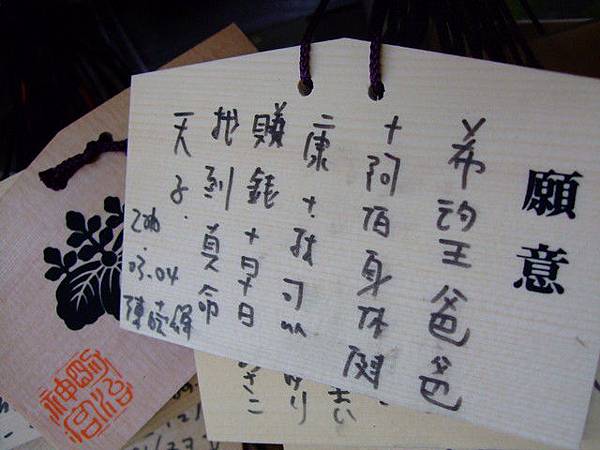 願意
希望王爸爸
+阿伯身体健
康+我可以
賺錢+早日
找到真命
天子.
2006.
03.04
陳
明治
神宮